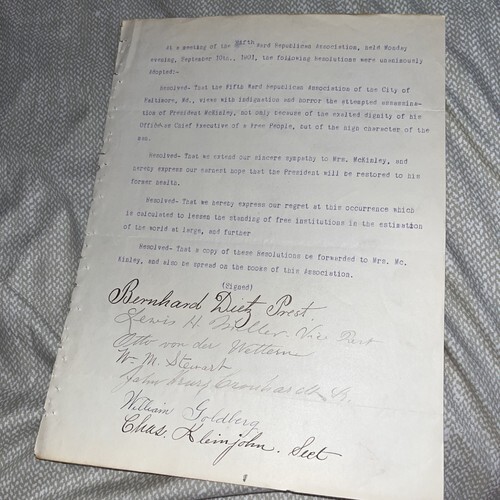 At a meeting of the Fifth Ward Republican Association, held Monday
evening, September 10th., 1901, the following Resolutions were unanimously
adopted:-
Resolved- That the Fifth Ward Republican Association of the City of
Baltimore, Md., views with indignation and horror the attempted assassina-
tion of President McKinley, not only because of the exalted dignity of his
Office as Chief Executive of a Free People, but of the high character of the
man.
Resolved- That we extend our sincere sympathy to Mrs. McKinley, and
hereby express our earnest hope that the President will be restored to his
former health.
Resolved- That we hereby express our regret at this occurrence which
is calculated to lessen the standing of free institutions in the estimation
of the world at large, and further
Resolved- That a copy of these Resolutions be forwarded to Mrs. Mc.
Kinley, and also be spread on the books of this Association.
(Signed)
Bernhard Dietz Prest.
Lewis H. Miller. Vice Prest
Otto von der Wettern
W. M. Stewart
John Cronhardt Jr.
William Goldberg
Chas. Kleinjohn. Sect